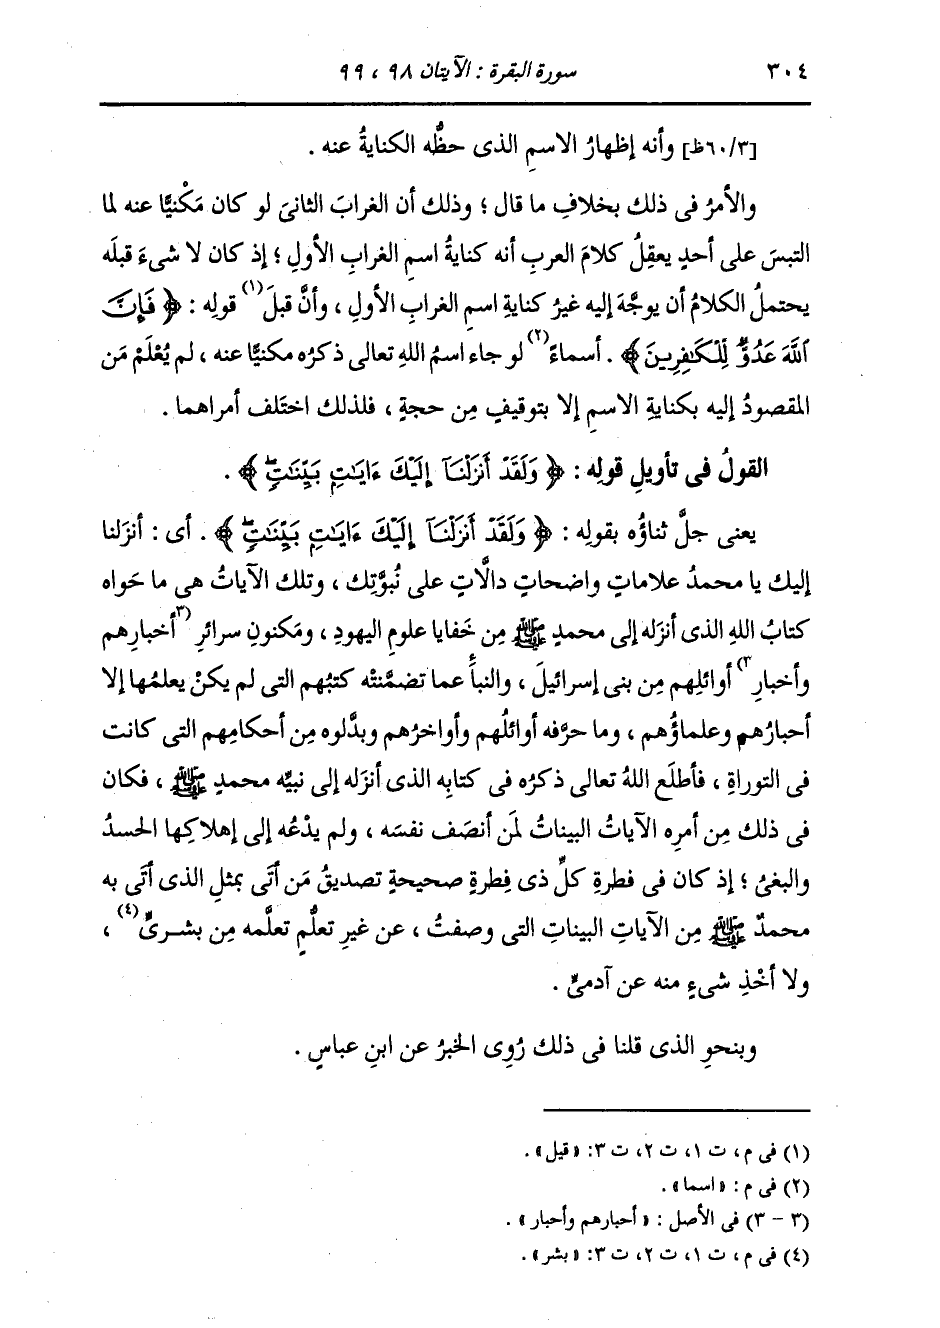 ٣٠٤ سورة البقرة : الآيتان ٩٨ ، ٩٩
[٦٠/٣ظ] وأنه إظهارُ الاسمِ الذى حظُّه الكنايةُ عنه .
والأمرُ فى ذلك بخلافِ ما قال ؛ وذلك أن الغرابَ الثانىَ لو كان مَكْنيًّا عنه لما
التبسَ على أحدٍ يعقِلُ كلامَ العربِ أنه كنايةُ اسمِ الغرابِ الأولِ ؛ إذ كان لا شىءَ قبلَه
يحتملُ الكلامُ أن يوجَّهَ إليه غيرُ كنايةِ اسمِ الغرابِ الأولِ ، وأنَّ قبلَ(١) قولِه : ﴿ فَإِنَّ
ٱللَّهَ عَدُوٌّ لِّلْكَٰفِرِينَ ﴾ . أسماءً(٢) لو جاء اسمُ اللهِ تعالى ذكرُه مكنيًّا عنه ، لم يُعْلَمْ مَن
المقصودُ إليه بكنايةِ الاسمِ إلا بتوقيفٍ مِن حجةٍ ، فلذلك اختَلف أمراهما .
القولُ فى تأويلِ قولِه : ﴿ وَلَقَدْ أَنزَلْنَآ إِلَيْكَ ءَايَٰتٍۭ بَيِّنَٰتٍۖ ﴾ .
يعنى جلَّ ثناؤُه بقولِه : ﴿ وَلَقَدْ أَنزَلْنَآ إِلَيْكَ ءَايَٰتٍۭ بَيِّنَٰتٍۖ ﴾ . أى : أنزَلنا
إليك يا محمدُ علاماتٍ واضحاتٍ دالَّاتٍ على نُبوَّتِك ، وتلك الآياتُ هى ما حَواه
كتابُ اللهِ الذى أنزَله إلى محمدٍ ﷺ مِن خَفايا علومِ اليهودِ ، ومَكنونِ سرائرِ (٣أخبارِهم
وأخبارِ٣) أوائلِهم مِن بنى إسرائيلَ ، والنبأَ عما تضمَّنته كتبُهم التى لم يكنْ يعلمُها إلا
أحبارُهم وعلماؤُهم ، وما حرَّفه أوائلُهم وأواخرُهم وبدَّلوه مِن أحكامِهم التى كانت
فى التوراةِ ، فأطلَع اللهُ تعالى ذكرُه فى كتابِه الذى أنزَله إلى نبيِّه محمدٍ ﷺ ، فكان
فى ذلك مِن أمرِه الآياتُ البيناتُ لمَن أنصَف نفسَه ، ولم يدْعُه إلى إهلاكِها الحسدُ
والبغىُ ؛ إذ كان فى فطرةِ كلِّ ذى فِطرةٍ صحيحةٍ تصديقُ مَن أتَى بمثلِ الذى أتَى به
محمدٌ ﷺ مِن الآياتِ البيناتِ التى وصفتُ ، عن غيرِ تعلُّمٍ تعلَّمه مِن بشرىٍّ(٤) ،
ولا أخْذِ شىءٍ منه عن آدمىٍّ .
وبنحوِ الذى قلنا فى ذلك رُوِى الخبرُ عن ابنِ عباسٍ .
(١) فى م، ت ١، ت ٢، ت ٣: «قيل» .
(٢) فى م : «اسما» .
(٣ - ٣) فى الأصل : «أحبارهم وأحبار» .
(٤) فى م، ت ١، ت ٢، ت ٣: «بشر» .